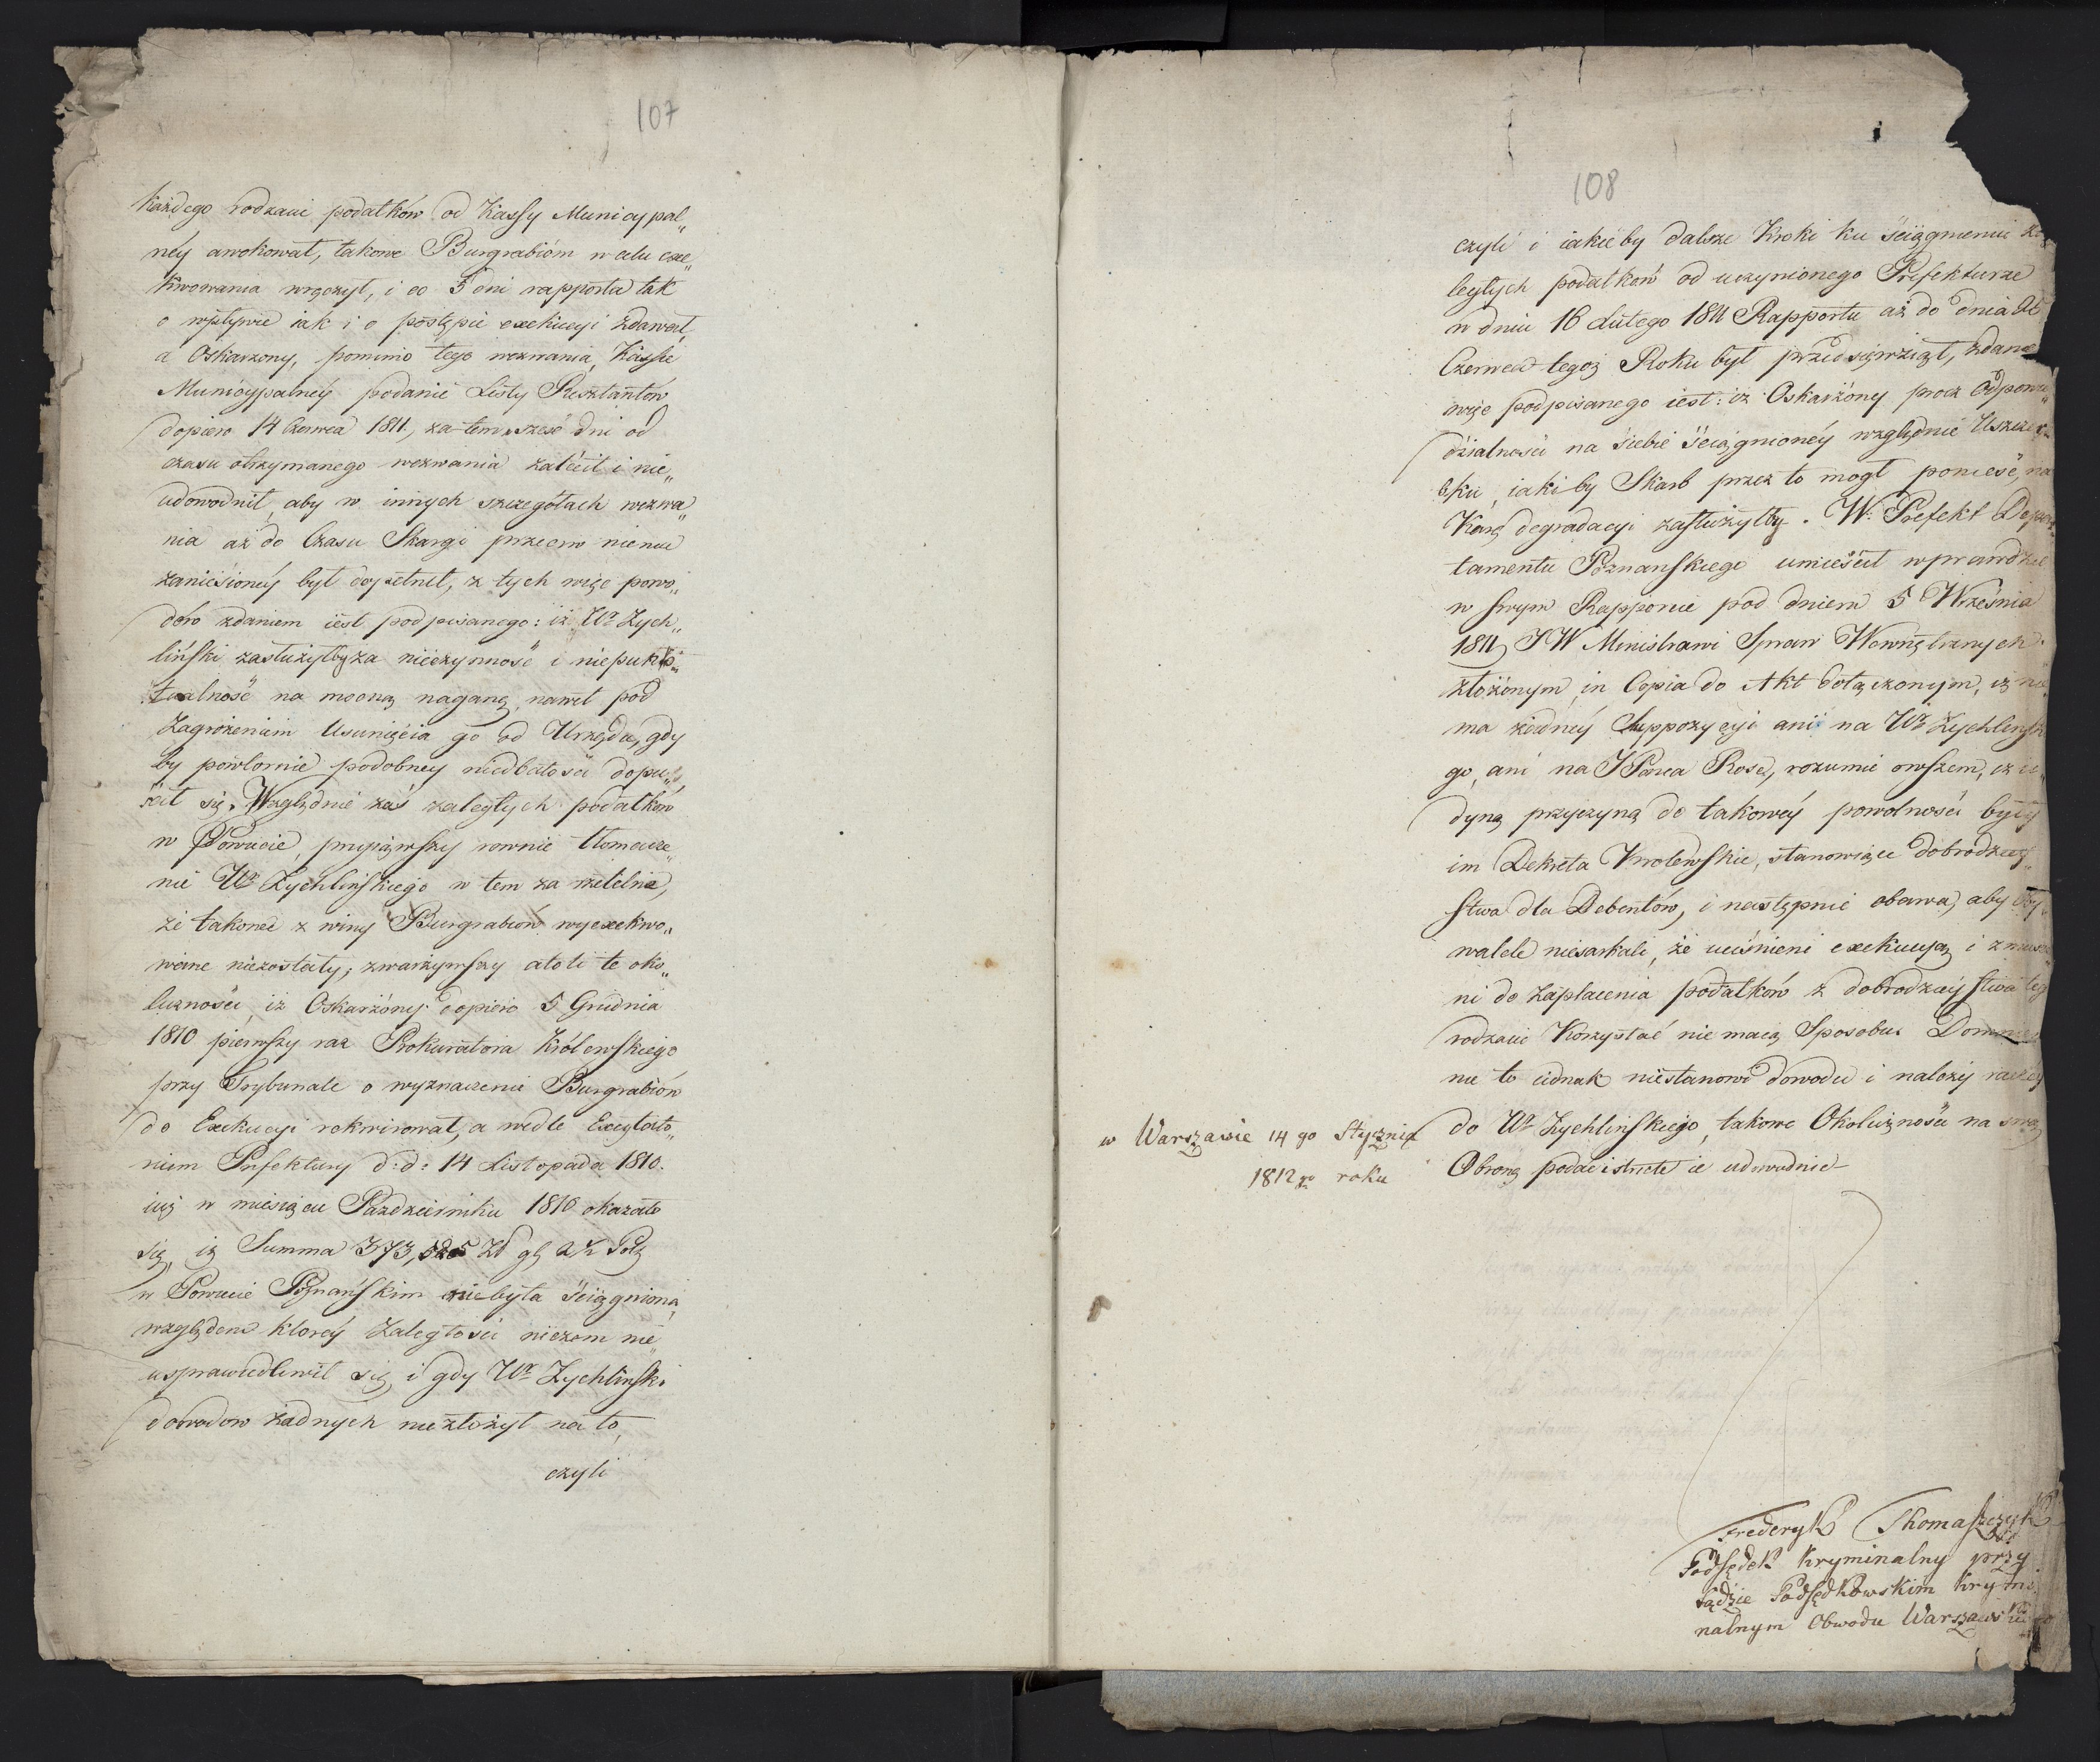 107
każdego rodzaui podatków od Kassy Municypal„
néy awokował, takowe Burgrabióm w celu exe„
kwowania wręczył, i co 5 dni rapporta tak
o wpływie iak i o postępie exekucyi zdawał,
a Oskarzony, pomimo tego wezwania, Kassie
Municypalnéy podanie Listy Resztantów
dopiero 14 Czerwca 1811, za tem sześć dni od
czasu otrzymanego wezwania zalécił i nie„
udowodnił, aby w innych szczegółach wezwa„
nia aż do Czasu Skargi przeciw niemu
zaniesionéy był dopełnił, z tych więc powo„
dów zdaniem iest podpisanego: iż Wr Zych„
liński zasłużyłby za nieczynność i niepunk„
tualność na mocną naganę, nawet pod
Zagrożeniem Usunięcia go od Urzędu, gdy
by powtornie podobney niedbałości dopu„
ścił się. Względnie zaś zaległych podatków
w Powiecie, przyiąwszy rownie tłomacze„
nie Wr Zychlińskiego w tem za rzetelne,
że takowe z winy Burgrabiów wyexekwo„
wane niezostały; zważywszy atoli te oko„
liczności, iż Oskarżóny dopiero 5 Grudnia
1810 pierwszy raz Prokuratora Królewskiego
przy Trybunale o wyznaczenie Burgrabiów
do Exekucyi rekwirował, a wedle
Prefektury d: d: 14 Listopada 1810.
iuż w miesiącu Październiku 1810 okazało
się, iż Summa 373,525 Zł gl 2½ Polz
w Powiecie Poznańskim niebyła ściągniona,
względem któréy Zaległości niczem nie
usprawiedliwił się, i gdy Wr Zychliński
dowodow żadnych niezłożył na to,
czyli
108
czyli i iakieby dalsze Kroki ku ściągnieniu za
ległych podatków od uczynionego Prefekturze
w dniu 16 Lutego 1811 Rapportu aż do dnia
Czerwca tegoż Roku był przedsięwziął, zdanie
więc podpisanego iest: iż Oskarżóny procz Odpowie„
dzialności na siebie ściągnionéy względnie Uszczer„
bku, iakiby Skarb przez to mogł ponieść, na
Karę degradacyi zasłużyłby. W: Prefekt Depar„
tamentu Poznanskiego umieścił wprawdzie
w swym Rapporcie pod dniem 5 Września
1811 JW Ministrowi Spraw Wewnętrznych
złożónym, in Copia do Akt dołączonym, iż nie
ma żadnéy Suppozycyi ani na Wr Zychlińsk
go, ani na JPana Rose, rozumie owszem, iż ie„
dyną przyczyną do takowéy powolności były
im Dekreta Krolewskie, stanowiące dobrodziey„
stwa dla Debentów, i następnie obawa, aby oby„
watele nieszarkali, że uciśnieni exekucyą i zmusze„
ni do zapłacenia podatków z dobrodzieystwa teg
rodzaiu Korzystać nie maią Sposobu.
nie to iednak niestanowi dowodu i należy raczey
do Wr Zychlinskiego, takowe Okoliczności na swą
Obronę podać i istnie ie udowodnić
w Warszawie 14 go Stycznia
1812 go roku
Frederyk Thomaszczyk
Podsędek Kryminalny przy
Sądzie Podsędkowskim Krymi„
nalnym Obwodu Warszawskie